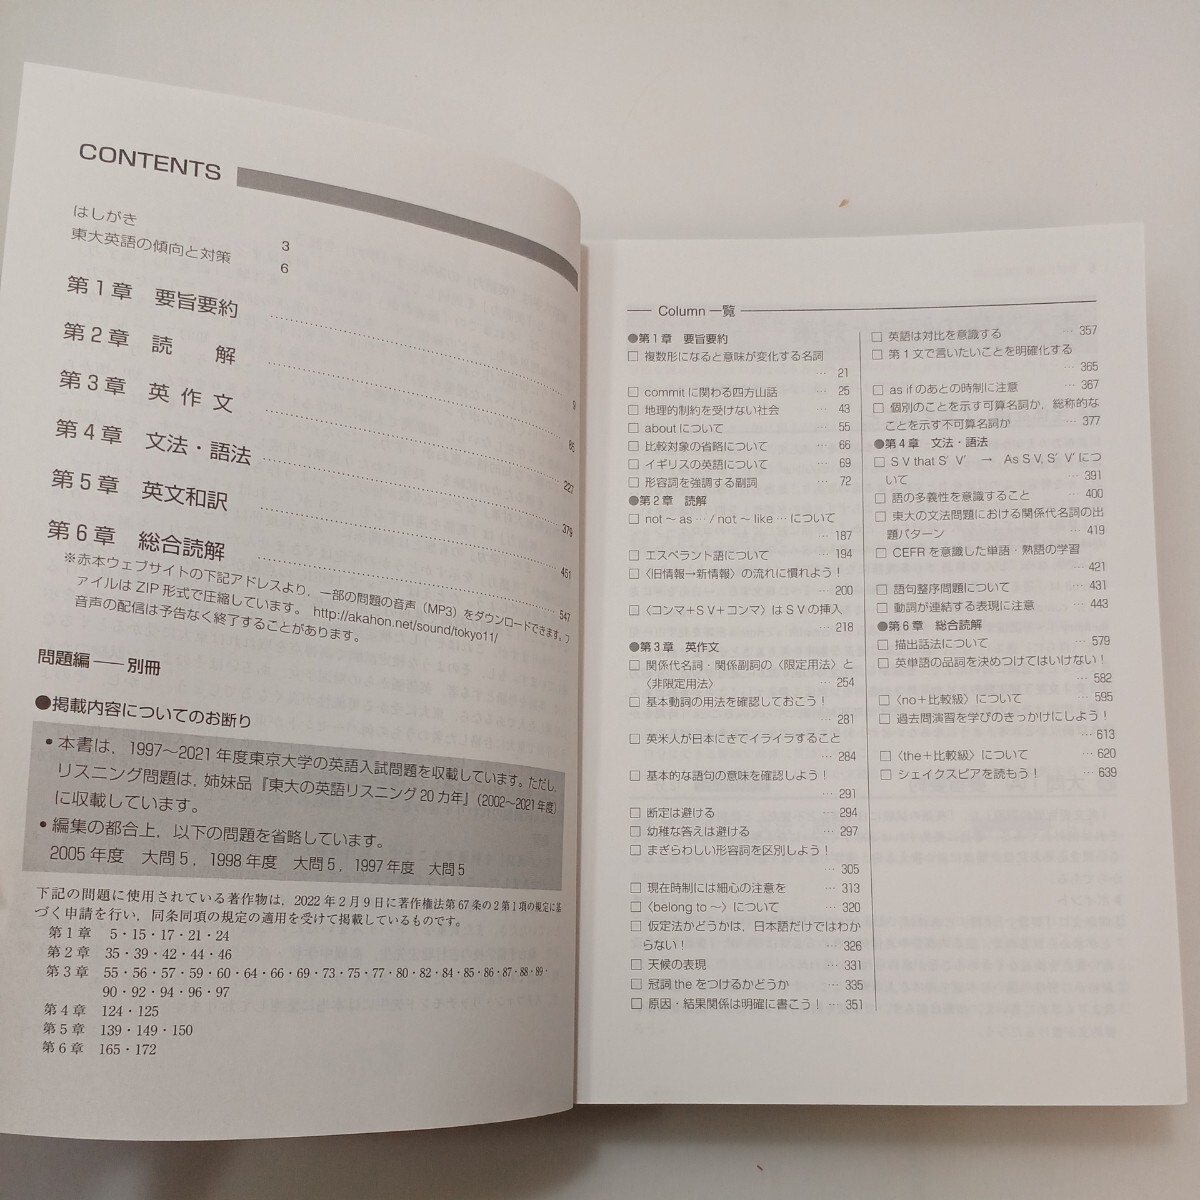 CONTENTS
はしがき 3
東大英語の傾向と対策 6
第1章 要旨要約 9
第2章 読 解 85
第3章 英作文 227
第4章 文法・語法 379
第5章 英文和訳 451
第6章 総合読解 547
※赤本ウェブサイトの下記アドレスより，一部の問題の音声（MP3）をダウンロードできます。フ
ァイルは ZIP 形式で圧縮しています。 http://akahon.net/sound/tokyo11/
音声の配信は予告なく終了することがあります。
問題編——別冊
●掲載内容についてのお断り
• 本書は，1997～2021年度東京大学の英語入試問題を収載しています。ただし，
リスニング問題は，姉妹品『東大の英語リスニング20カ年』（2002～2021年度）
に収載しています。
• 編集の都合上，以下の問題を省略しています。
2005年度 大問5，1998年度 大問5，1997年度 大問5
下記の問題に使用されている著作物は，2022年2月9日に著作権法第67条の2第1項の規定に基
づく申請を行い，同条同項の規定の適用を受けて掲載しているものです。
第1章 5・15・17・21・24
第2章 35・39・42・44・46
第3章 55・56・57・59・60・64・66・69・73・75・77・80・82・84・85・86・87・88・89・
90・92・94・96・97
第4章 124・125
第5章 139・149・150
第6章 165・172
Column 一覧
●第1章 要旨要約
□ 複数形になると意味が変化する名詞
… 21
□ commit に関わる四方山話 … 25
□ 地理的制約を受けない社会 … 43
□ about について … 55
□ 比較対象の省略について … 66
□ イギリスの英語について … 69
□ 形容詞を強調する副詞 … 72
●第2章 読解
□ not ～ as … / not ～ like … について
… 187
□ エスペラント語について … 194
□〈旧情報→新情報〉の流れに慣れよう！
… 200
□〈コンマ＋SV＋コンマ〉はSVの挿入
… 218
●第3章 英作文
□ 関係代名詞・関係副詞の〈限定用法〉と
〈非限定用法〉 … 254
□ 基本動詞の用法を確認しておこう！
… 281
□ 英米人が日本にきてイライラすること
… 284
□ 基本的な語句の意味を確認しよう！
… 291
□ 断定は避ける … 294
□ 幼稚な答えは避ける … 297
□ まぎらわしい形容詞を区別しよう！
… 305
□ 現在時制には細心の注意を … 313
□〈belong to ～〉について … 320
□ 仮定法かどうかは，日本語だけではわか
らない！ … 326
□ 天候の表現 … 331
□ 冠詞 the をつけるかどうか … 335
□ 原因・結果関係は明確に書こう！ … 351
□ 英語は対比を意識する … 357
□ 第1文で言いたいことを明確化する
… 365
□ as if のあとの時制に注意 … 367
□ 個別のことを示す可算名詞か，総称的な
ことを示す不可算名詞か … 377
●第4章 文法・語法
□ S V that S′ V′ → As S V, S′ V′につ
いて … 391
□ 語の多義性を意識すること … 400
□ 東大の文法問題における関係代名詞の出
題パターン … 419
□ CEFR を意識した単語・熟語の学習
… 421
□ 語句整序問題について … 431
□ 動詞が連結する表現に注意 … 443
●第6章 総合読解
□ 描出話法について … 579
□ 英単語の品詞を決めつけてはいけない！
… 582
□〈no＋比較級〉について … 595
□ 過去問演習を学びのきっかけにしよう！
… 613
□〈the＋比較級〉について … 620
□ シェイクスピアを読もう！ … 639